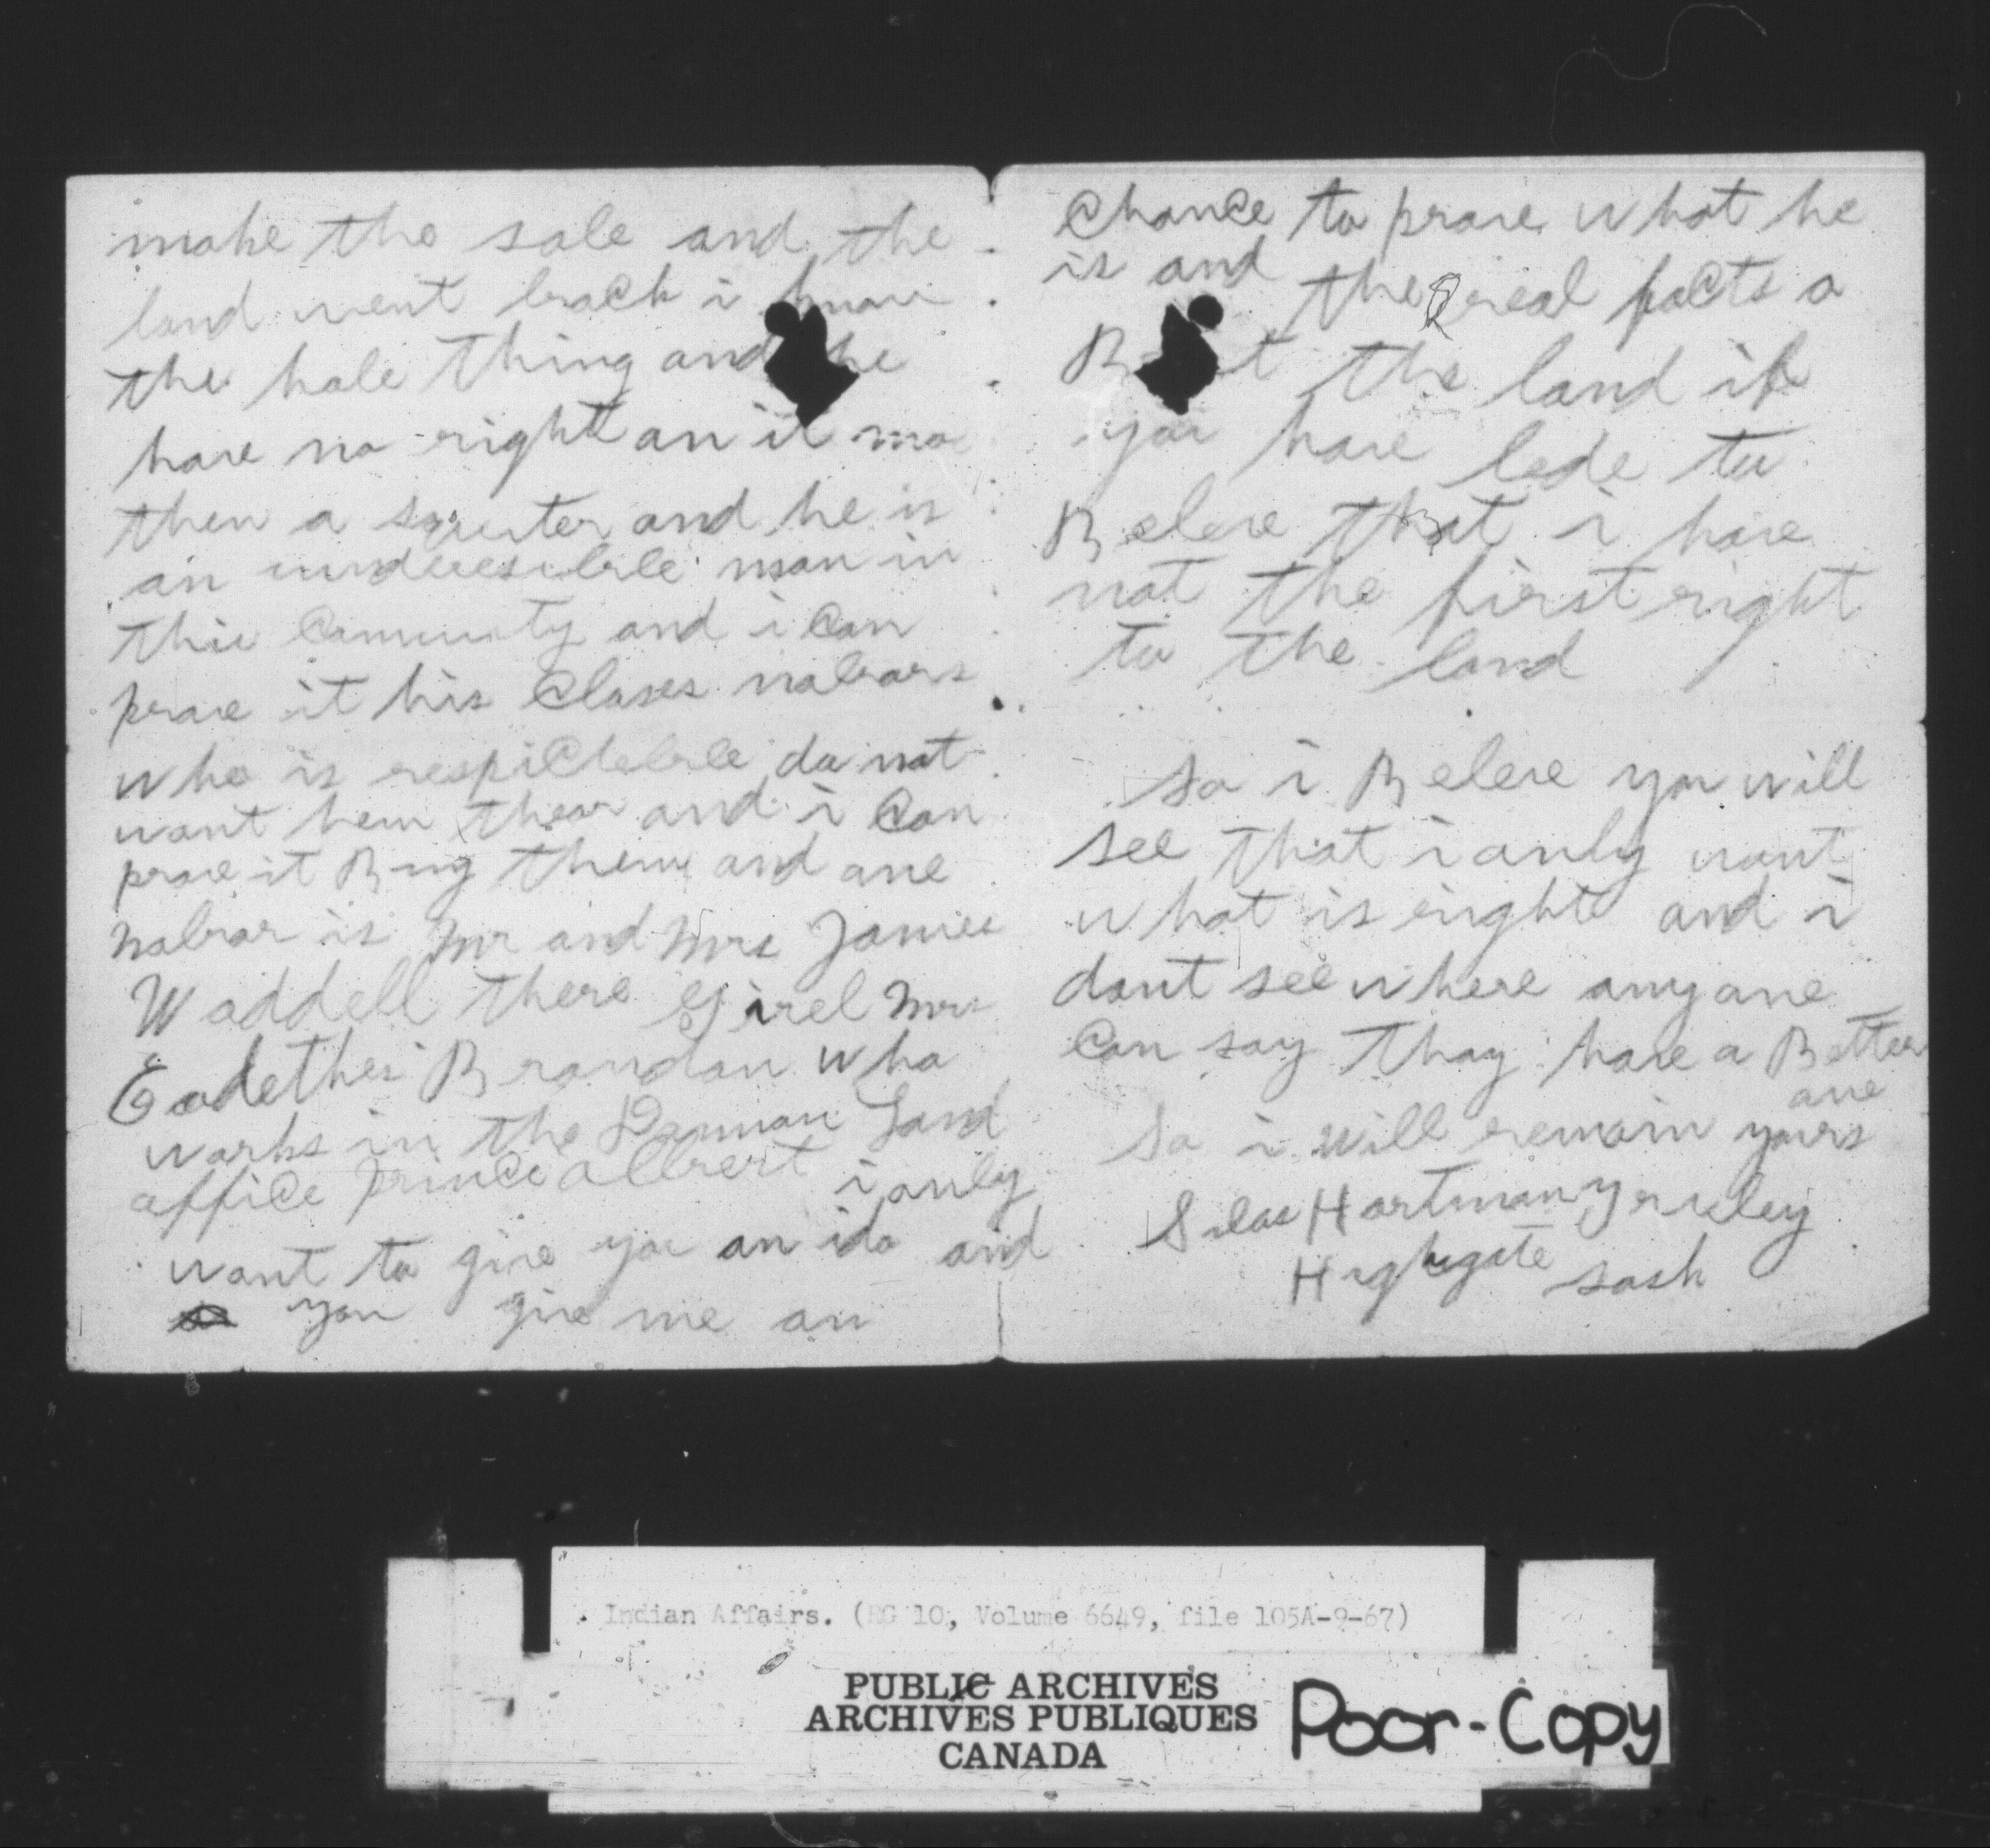 make the sale and the
land went back i know
the hole thing and he
have no right on it mo
then a squter and he is
an undeesible man in
this Community and i Can
prove it his Closes nabors
who is respicteble do not
want hem thear and i Can
prove it By them and one
nabor is Mr and Mrs James
Waddell there Girel Mrs
Brandon who
works in the Land
office Prince albert i only
want to give you an ida and
you give me an
Chance to prove what he
is and the real facts a
B t the land if
you have lede to
Beleve that i have
not the first right
to the land
So i Beleve you will
see that i only want
what is right and i
dont see where anyone
Can say thay have a Better
one
So i will remain yours
Silas Hartman Yerxley
Highgate Sask
Indian Affairs. (RG 10, Volume 6649, file 105A-9-67)
PUBLIC ARCHIVES
ARCHIVES PUBLIQUES
CANADA
Poor-Copy